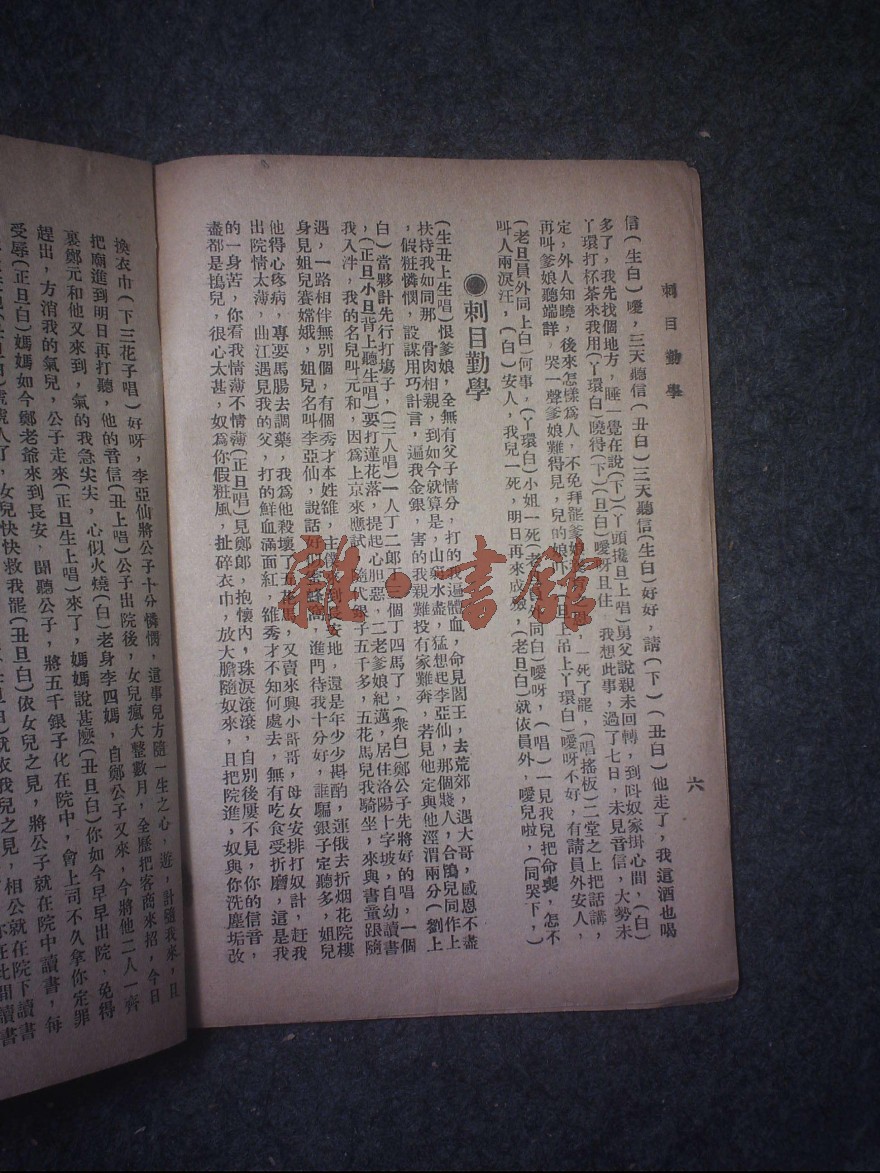 刺目勤學
六
信(生白)噯，三天聽信(丑白)三天聽信(生白)好好，請(下)(丑白)他走了，我這酒也喝
多了，我先找個地方，睡一覺在說(下)(丫頭攙旦上唱)舅父說親未回轉，到叫奴家掛心間，(白)
丫環打杯茶來我用(丫環白)曉得(下)(旦白)噯呀且住，我想此事，過了七日，未見音信，大勢未
定，外人知曉，後來怎樣為人，不免拜罷爹娘 一死了罷，(唱搖板)二堂之上把話講，
再叫爹娘聽端詳，哭一聲爹娘難得見，兒的娘 旦上吊上丫環白)噯呀不好，有請員外安人，
(老旦員外同上白)何事，(丫環白)小姐一死(老旦 同白)噯呀，(唱)一見我兒把命喪，怎不
叫人兩淚汪，(白)安人，我兒一死，明日再來成殮，(老旦白)就依員外，噯兒啦，(同哭下，)
●刺目勤學
(生丑上生唱)恨爹娘，全無有父子情分，打的我遍體血，命見閻王，去荒郊，遇大哥，感恩不盡
扶持我如同那 骨肉相親，到如今就算是，山窮水盡，猛想起李亞仙，那個賤人，合鴇兒同作上
，假粧憐憫，設謀用巧計言，逼我金銀，害的我親難投有家難奔，若見他定與他涇渭兩分(劉上
白)當夥計先行打塲子，(三人唱)一人丁二郎 三個丁四馬了，(衆白)鄭公子先將好的唱，一個
，(正旦小旦背上聽生唱)要打蓮花落，提起心胆惡，二老爹娘紀邁，居住洛陽十字坡，自幼讀書
我入泮，我的名兒叫元和，因為上京來應試，隨代銀子五千多，五花馬兒我騎坐，來興書童跟隨
遇，一路相伴無別個，有個秀才本姓雒，主僕來到長安地，還是年少少斟酌，運俄去折烟花院樓
身見姐兒賽嫦娥，姐兒名叫李亞仙，說話好似 蜂窩，進門待我十分好，誰騙銀子定聽多，姐兒
他得心疼病，專要馬腸去調藥，我為他殺壞了五花馬，又賣來興小哥哥，母女安排打奴計，赶我
出院情太薄，曲江遇見我的父，打的鮮血滿面紅，雒秀才不知何處去，無有吃食受折磨，這是我
的一身苦，你看我情薄不情薄(正旦唱)見鄭郎，抱懷內，珠淚滾滾，自別後屢不見，你的信音，
盡都是搗兒，很心太甚，奴為你假粧風，扯碎衣巾，放大膽隨奴來，且把院進，奴與你洗塵垢改
換衣巾(下三花子唱)好呀，李亞仙將公子十分憐憫，這事兒方隨一生之心，遊，計隨我來，且
把廟進到明日再打聽，他的音信(丑上唱)公子出院後，女兒瘋大整數月，全應把客商來招，今日
裏鄭元和他又來到，氣的我急尖尖，心似火燒(白)老身李四媽，自鄭公子又來，今將他二人一齊
趕出，方消我的氣兒，公子走來(正旦生上唱)來了，媽媽說甚麽(丑旦白)你如今早早出院，免得
受辱(正旦白)媽媽如今鄭老爺來到長安，聞聽公子，將五千銀子化在院中，會上司不久拿你定罪
虎唬人了，女兒快快救我罷(丑旦白)依女兒之見，將公子就在院中讀書，每
就衣我兒之見，相公就在院下讀書
此間讀書
雜·書館